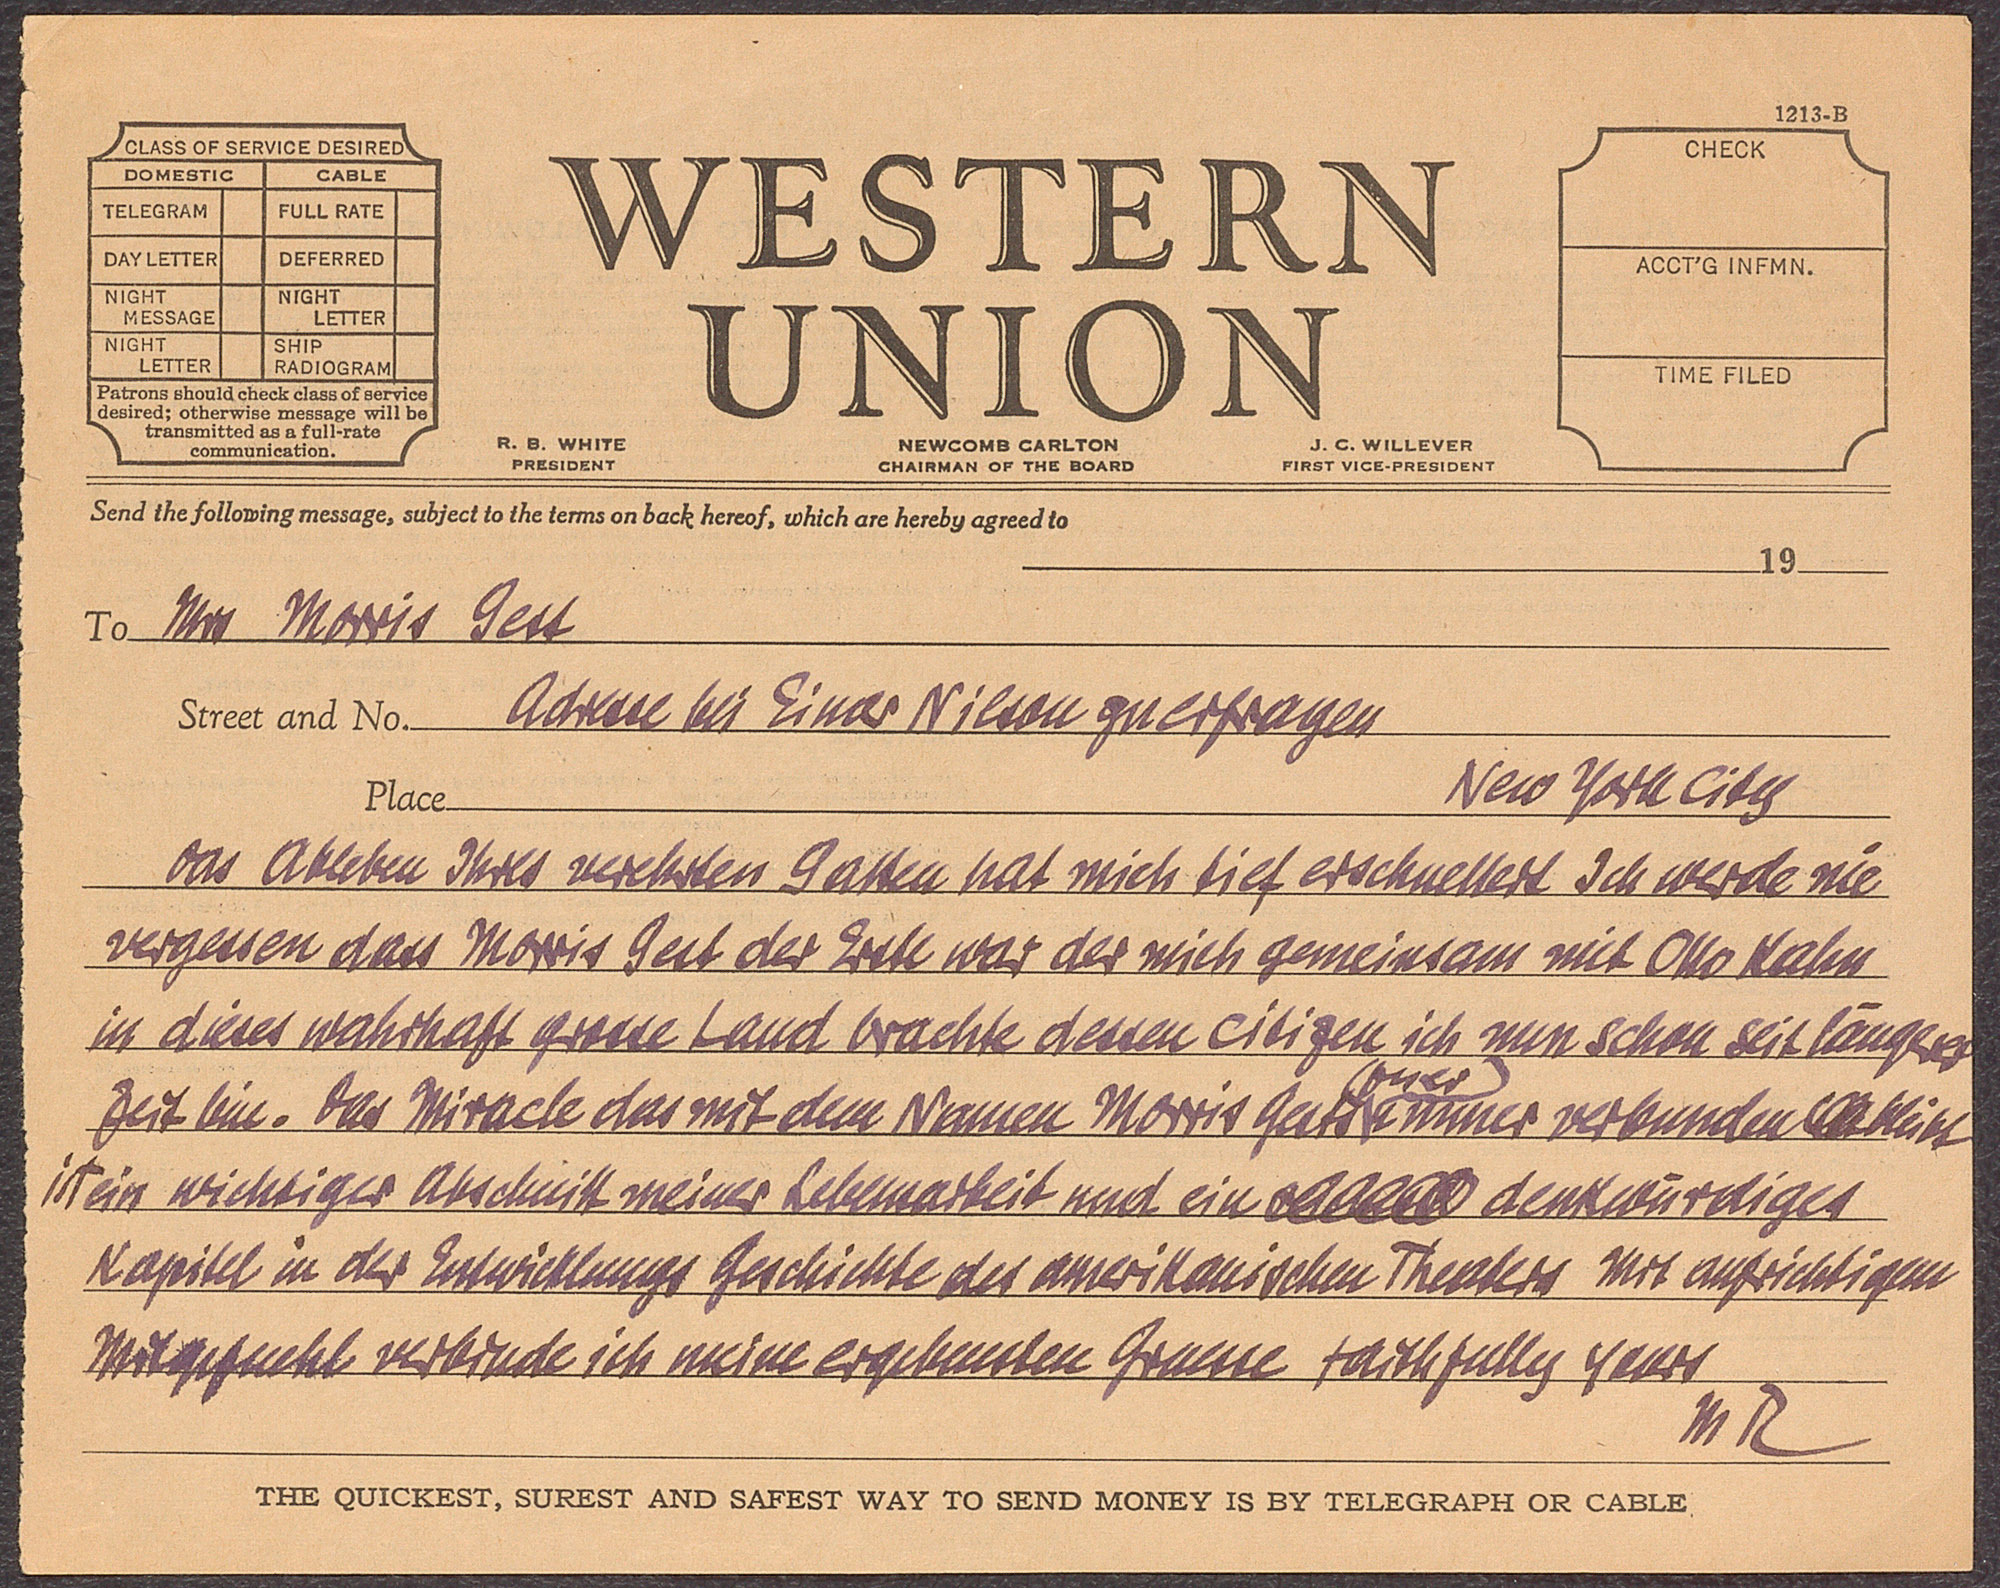 1213-B
CLASS OF SERVICE DESIRED
DOMESTIC CABLE
TELEGRAM FULL RATE
DAY LETTER DEFERRED
NIGHT MESSAGE NIGHT LETTER
NIGHT LETTER SHIP RADIOGRAM
Patrons should check class of service
desired; otherwise message will be
transmitted as a full-rate
communication.
WESTERN
UNION
R. B. WHITE
PRESIDENT
NEWCOMB CARLTON
CHAIRMAN OF THE BOARD
J. C. WILLEVER
FIRST VICE-PRESIDENT
CHECK
ACCT'G INFMN.
TIME FILED
Send the following message, subject to the terms on back hereof, which are hereby agreed to
19
To Mrs Morris Gest
Street and No. Adresse bei Einar Nilson zu erfragen
Place New York City
Das Ableben Ihres verehrten Gatten hat mich tief erschuettert Ich werde nie
vergessen dass Morris Gest der Erste war der mich gemeinsam mit Otto Kahn
in dieses wahrhaft grosse Land brachte dessen Citizen ich nun schon seit längerer
Zeit bin. Das Miracle das mit dem Namen Morris Gests immer verbunden bleibt
ist ein wichtiger Abschnitt meiner Lebensarbeit und ein denkwürdiges
Kapitel in der Entwicklungs Geschichte des amerikanischen Theaters Mit aufrichtigem
Mitgefuehl verbinde ich meine ergebensten Gruesse faithfully yours
M R
THE QUICKEST, SUREST AND SAFEST WAY TO SEND MONEY IS BY TELEGRAPH OR CABLE